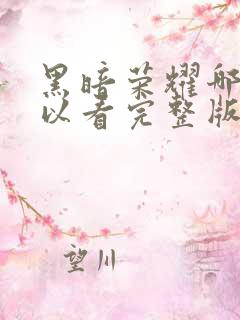 黑暗荣耀哪
以看完整版
望川